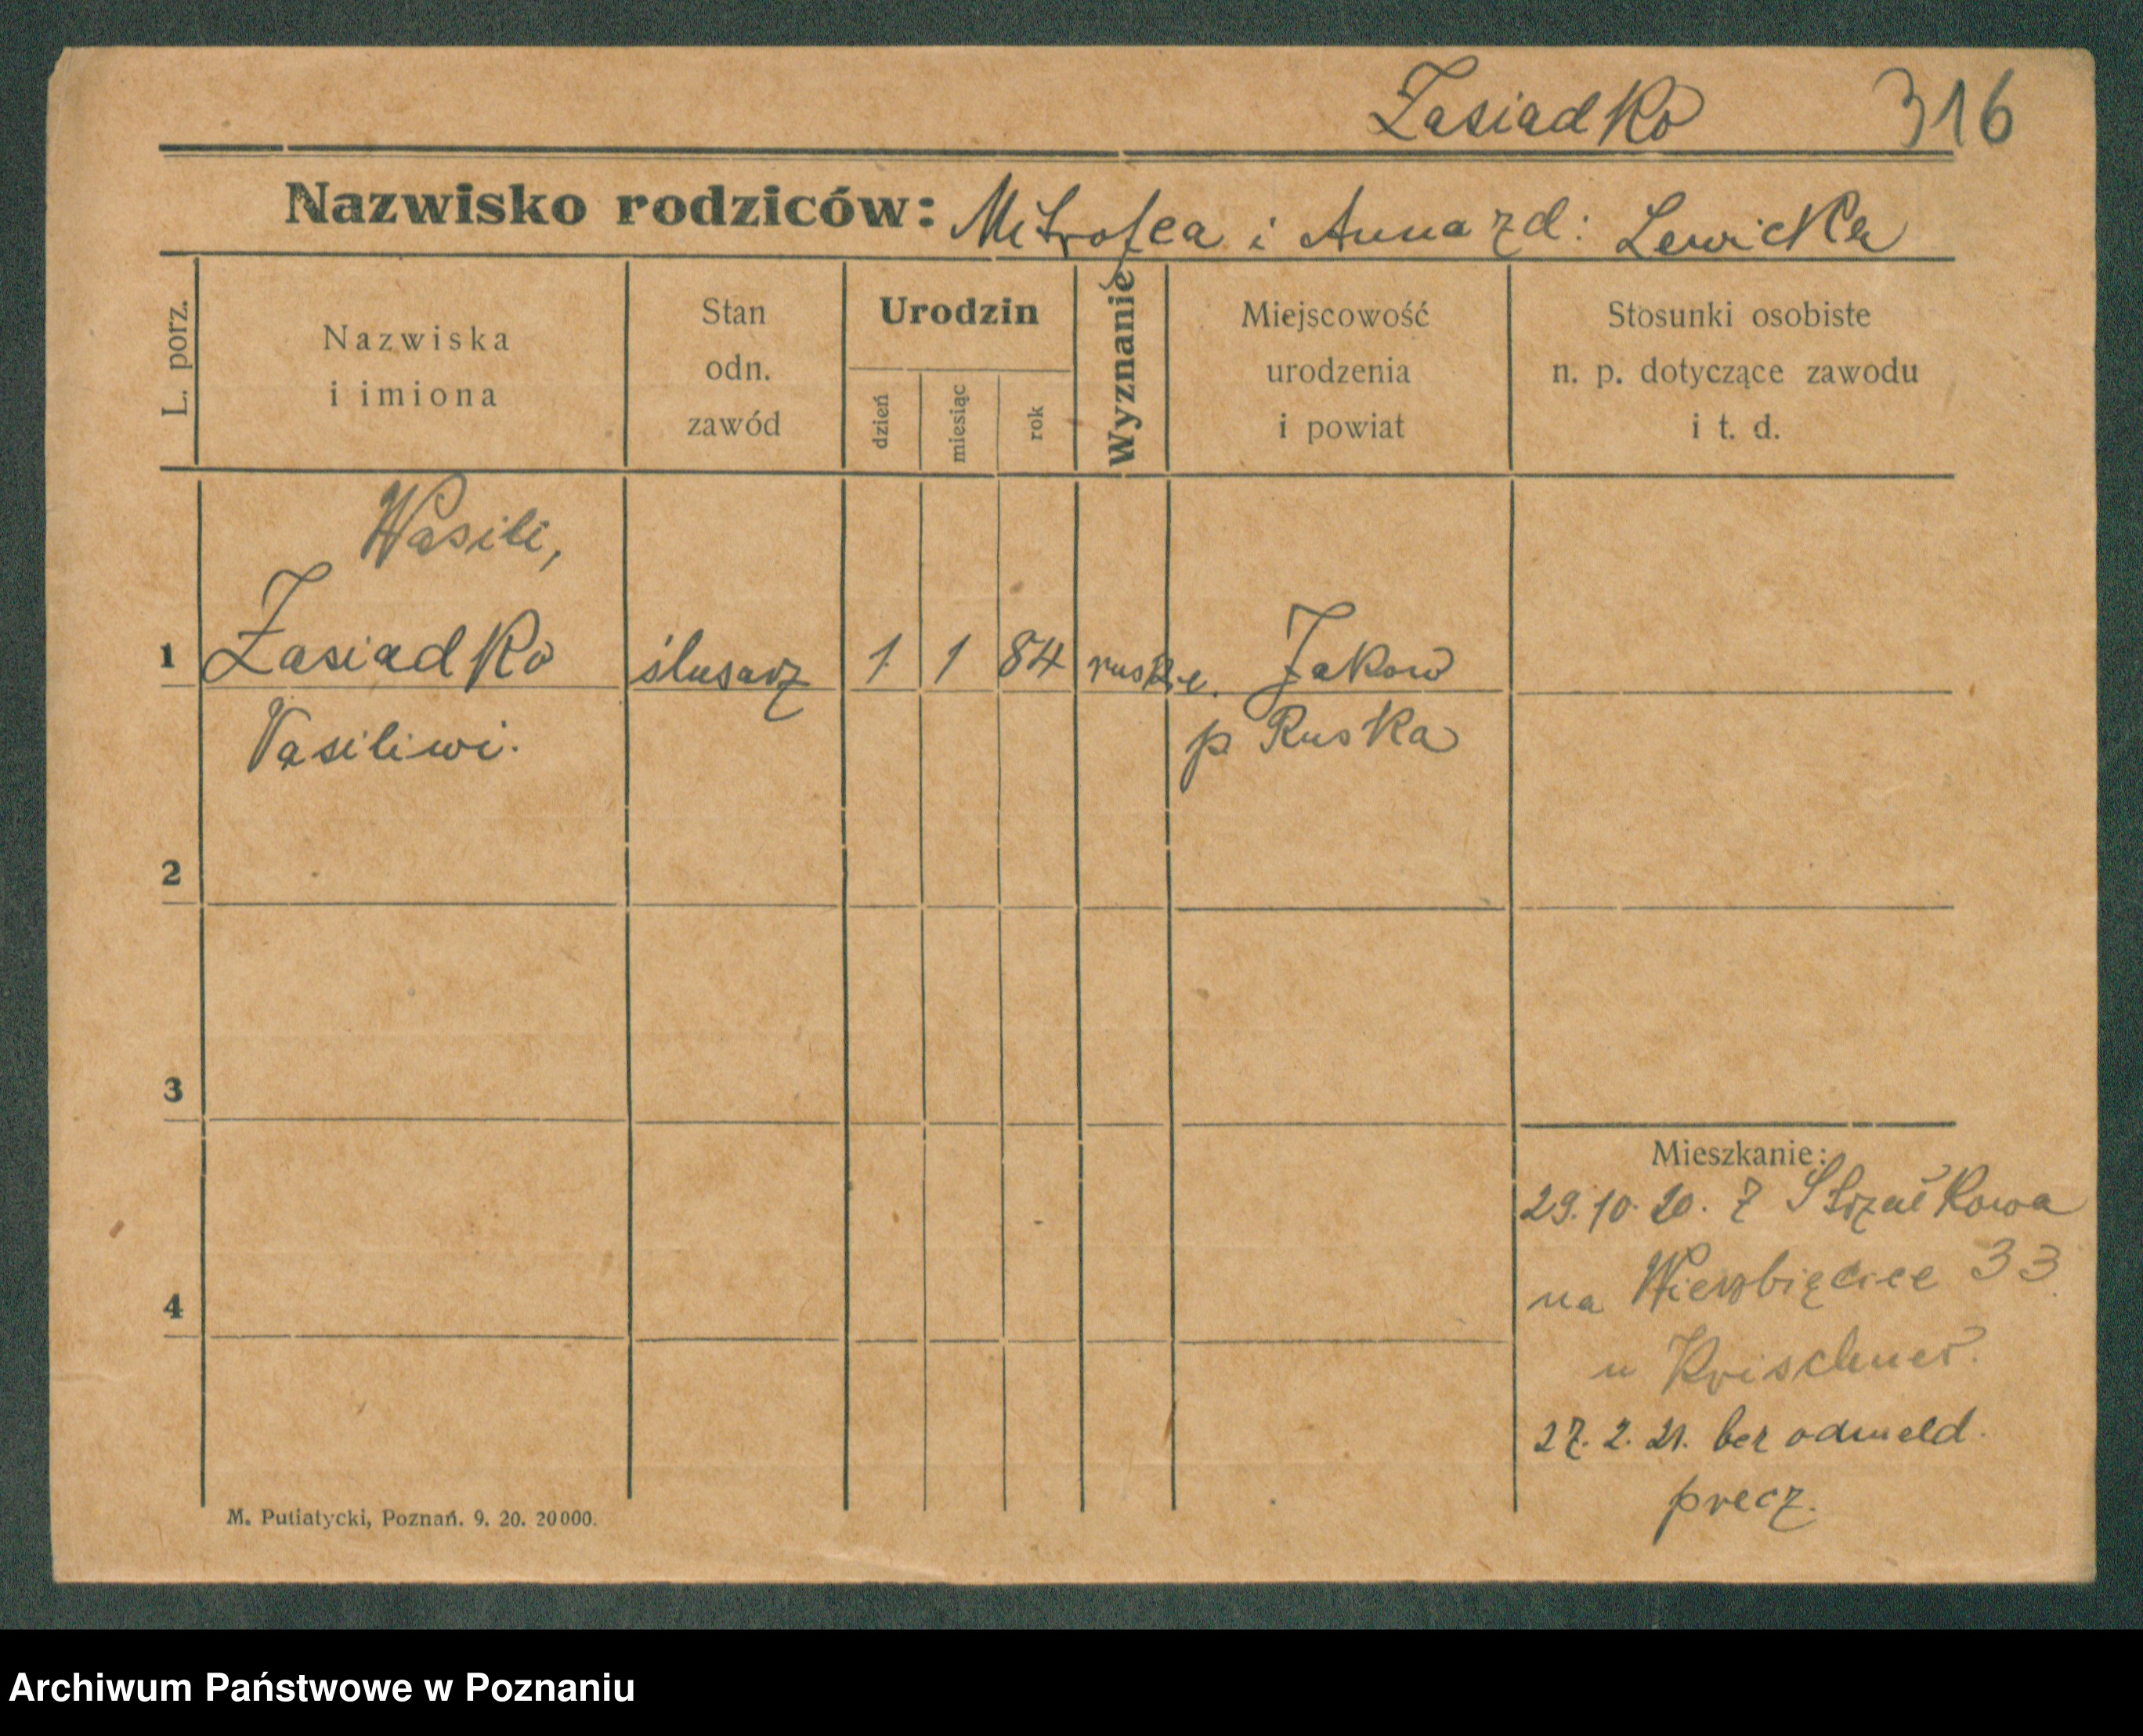 Zasiadko 316
Nazwisko rodziców: Mitrofea i Anna zd: Lewicka
L. porz.
Nazwiska
i imiona
Stan
odn.
zawód
Urodzin
dzień
miesiąc
rok
Wyznanie
Miejscowość
urodzenia
i powiat
Stosunki osobiste
n. p. dotyczące zawodu
i t. d.
Wasili,
1 Zasiadko ślusarz 1 1 84 ruskie. Jakow
Vasiliwi. p Ruska
2
3
4
Mieszkanie:
29.10.20. z Strzałkowa
na Wierzbięcice 33.
u Krischner.
27.2.21. bez odmeld.
precz.
M. Putiatycki, Poznań. 9. 20. 20000.
Archiwum Państwowe w Poznaniu